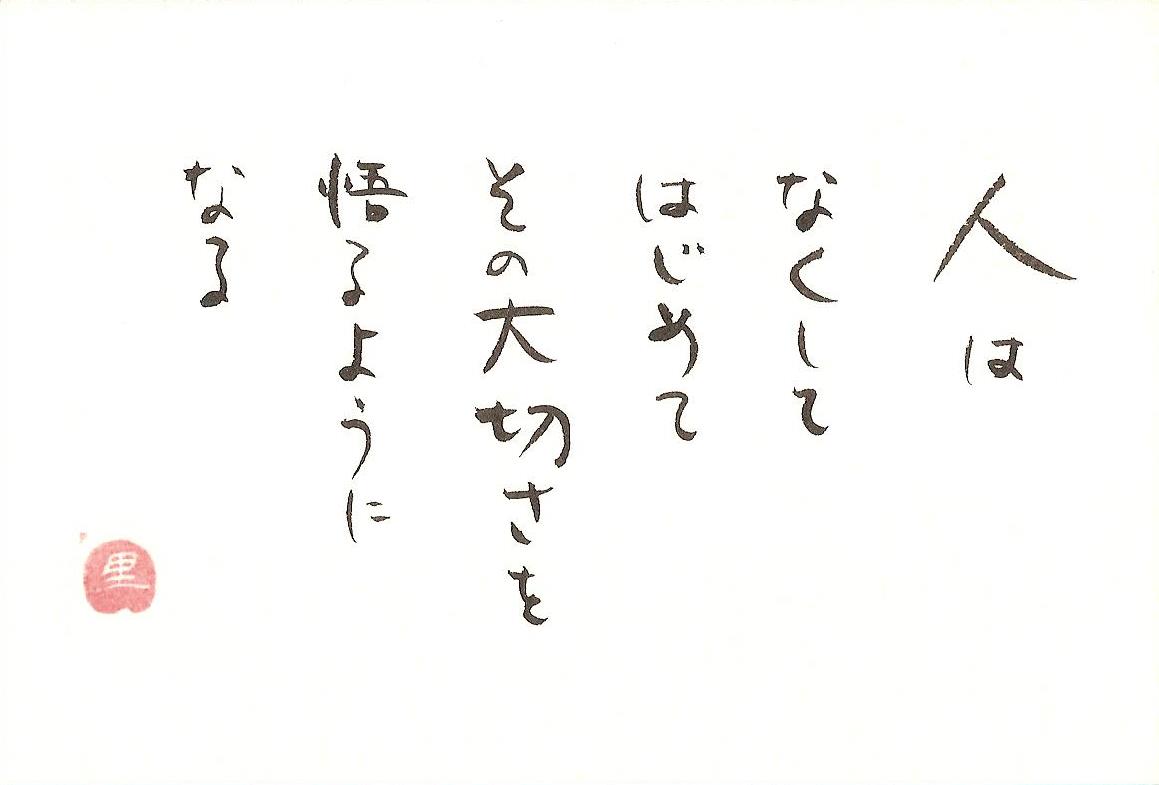 人は
なくして
はじめて
その大切さを
悟るように
なる
里